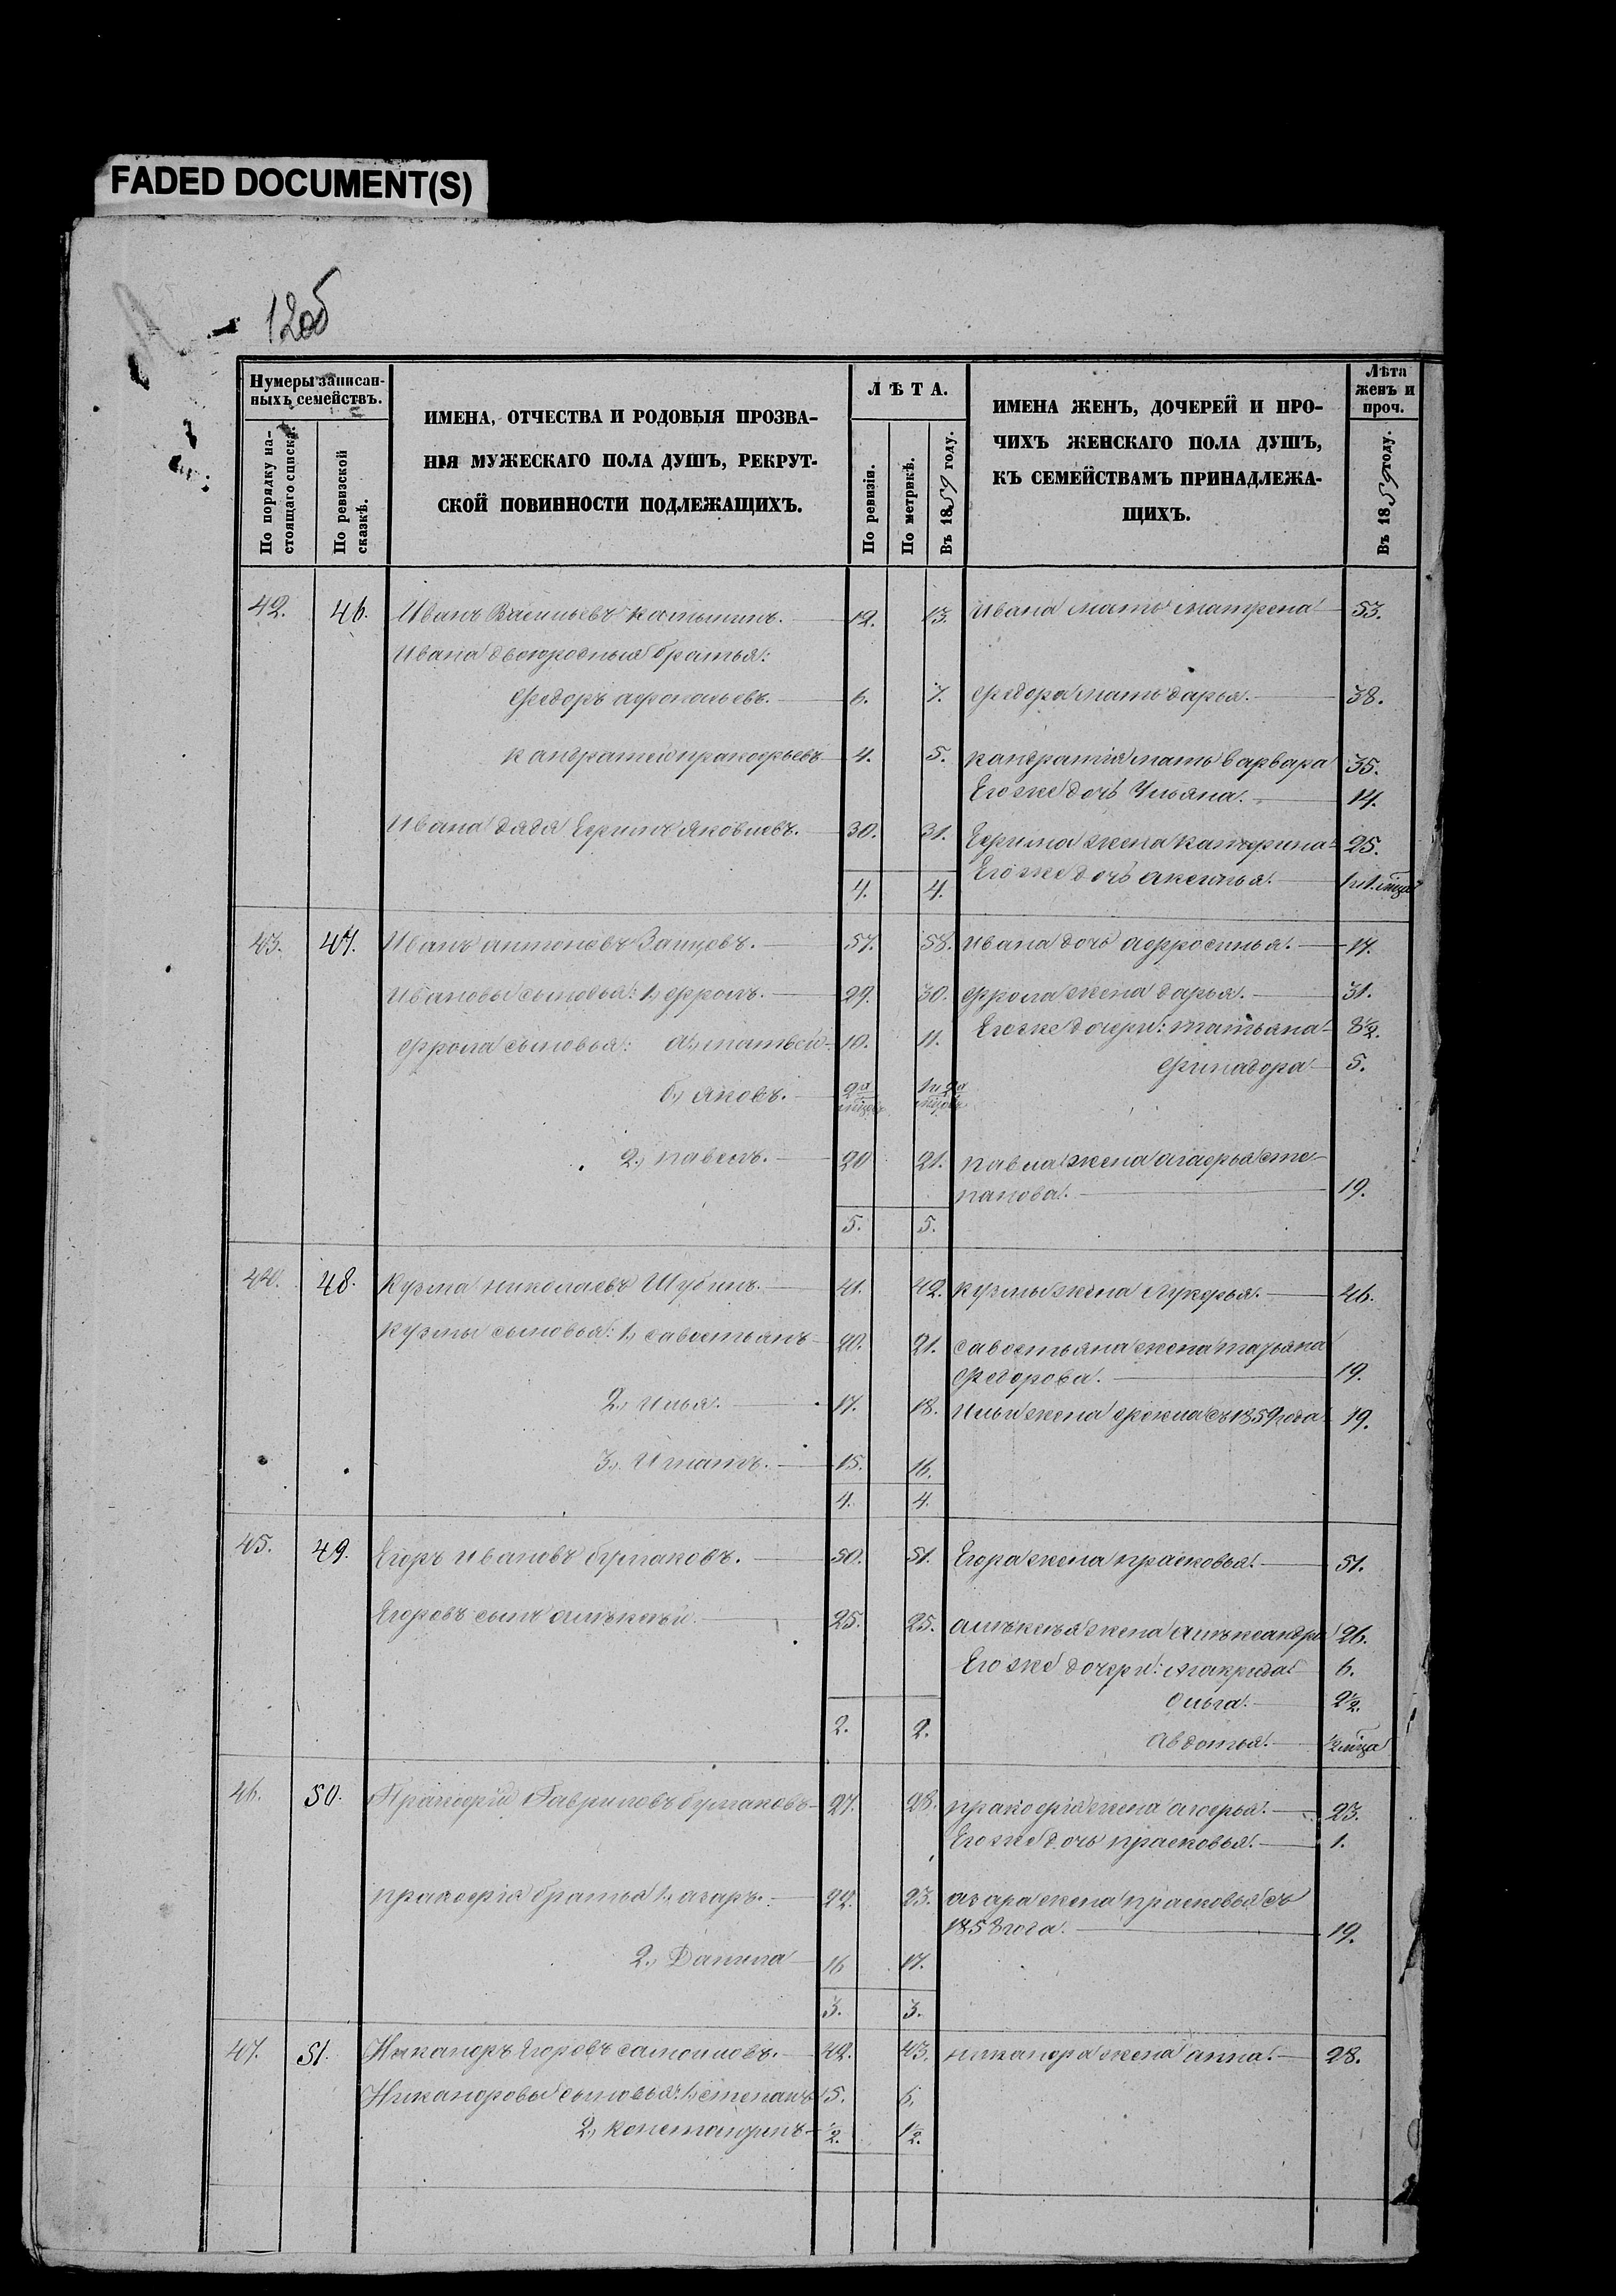 FADED DOCUMENT(S)
12об
Нумеры записан-
ныхъ семействъ.
По порядку на-
стоящаго списка.
По ревизской
сказкѣ.
ИМЕНА, ОТЧЕСТВА И РОДОВЫЯ ПРОЗВА-
НІЯ МУЖЕСКАГО ПОЛА ДУШЪ, РЕКРУТ-
СКОЙ ПОВИННОСТИ ПОДЛЕЖАЩИХЪ.
ЛѢТА.
По ревизіи.
По метрикѣ.
Въ 1859 году.
ИМЕНА ЖЕНЪ, ДОЧЕРЕЙ И ПРО-
ЧИХЪ ЖЕНСКАГО ПОЛА ДУШЪ,
КЪ СЕМЕЙСТВАМЪ ПРИНАДЛЕЖА-
ЩИХЪ.
Лѣта
женъ и
проч.
Въ 1859 году.
42. 46. Иванъ Васильевъ 12. 13. Ивана мать матрена 53.
Ивана двоюродныя братья:
Федоръ афонасьевъ. 6. 7. Федора мать дарья. 38.
кандратей пракофьевъ 4. 5. кандратія мать варвара 35.
Его же дочь Ульяна. 14.
Ивана дядя Ефимъ Яковлевъ. 30. 31. Ефима жена катерина 25.
Его же дочь аксинья.
4. 4.
43. 47. Иванъ антоновъ Зайцовъ. 57. 58. Ивана дочь афросинья. 17.
Ивановы сыновья: 1, фролъ. 29. 30. фрола жена дарья. 31.
фрола сыновья: а, матвей 10. 11. Его же дочери: татьяна 8½.
финадора 5.
б, яковъ.
2, павелъ. 20 21. павла жена агафья сте-
панова. 19.
5. 5.
44. 48. Кузма николаевъ Шубинъ. 41. 42. кузмы жена лукерья. 46.
кузмы сыновья: 1, савостьянъ 20. 21. савостьяна жена татьяна
Федорова. 19.
2, Илья. 17. 18. Ильи жена фекла съ 1859 года 19.
3, Игнатъ. 15. 16.
4. 4.
45. 49. Егоръ ивановъ бурлаковъ. 50. 51. Егора жена прасковья. 51.
Егоровъ сынъ алѣксѣй 25. 25. алѣксѣя жена алѣксандра 26.
Его же дочери: макрида 6.
Ольга. 2½.
Авдотья. ½ мѣца
2. 2.
46. 50. Пракофій Гавриловъ бурлаковъ 27. 28. пракофія жена 23.
Его же дочь прасковья. 1.
пракофія братья 1, азаръ. 22. 23. азара жена прасковья съ
1858 года. 19.
2, Данила 16 17.
3. 3.
47. 51. Никаноръ Егоровъ самойловъ. 42. 43. никанора жена анна. 28.
Никаноровы сыновья: 1, степанъ 5. 6.
2, константинъ ½. 1½.